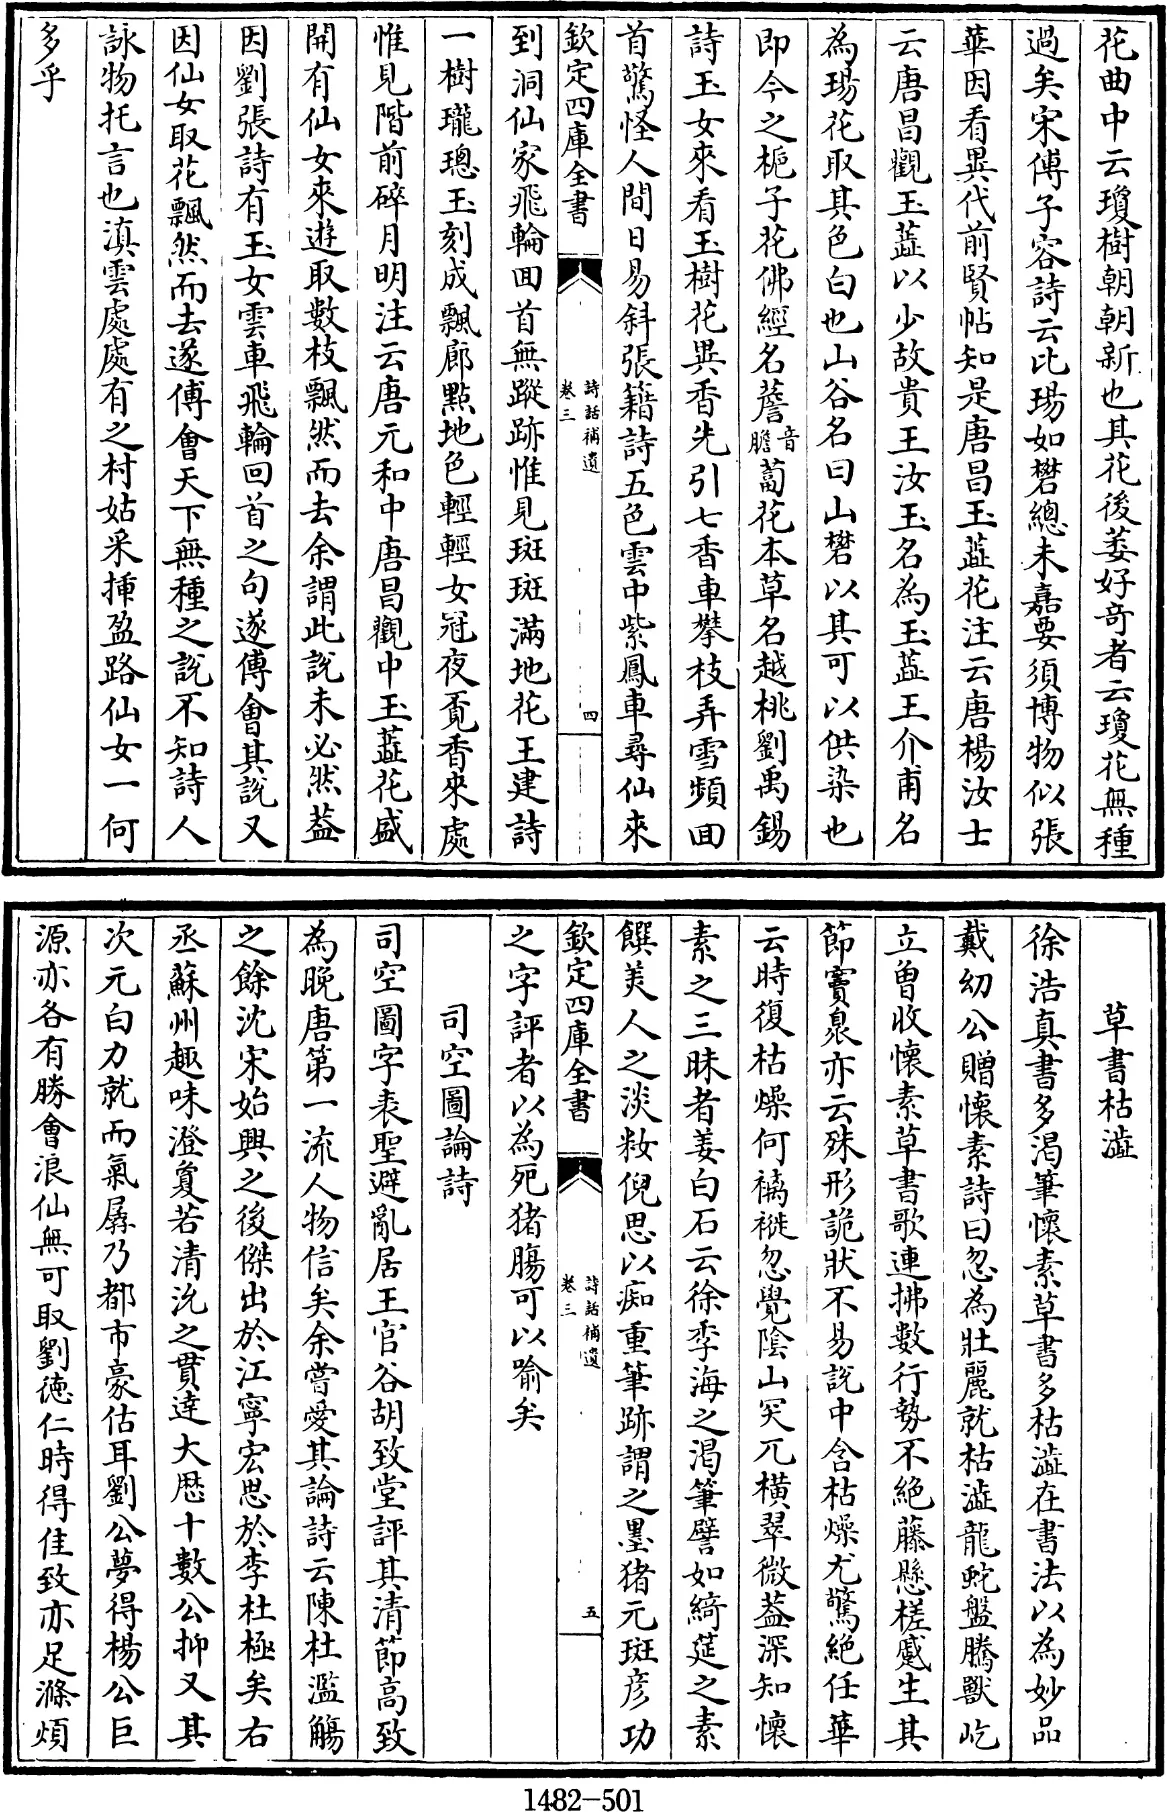 花曲中云瓊樹朝朝新也其花後萎好奇者云瓊花無種
過矣宋傅子容詩云比瑒如礬總未嘉要須博物似張
華因看異代前賢帖知是唐昌玉蘂花注云唐楊汝士
云唐昌觀玉蘂以少故貴王汝玉名為玉蘂王介甫名
為瑒花取其色白也山谷名曰山礬以其可以供染也
即今之梔子花佛經名薝音膽蔔花本草名越桃劉禹錫
詩玉女來看玉樹花異香先引七香車攀枝弄雪頻回
首驚怪人間日易斜張籍詩五色雲中紫鳳車尋仙來
欽定四庫全書
詩話補遺
卷三
四
到洞仙家飛輪回首無蹤跡惟見斑斑滿地花王建詩
一樹瓏璁玉刻成飄廊點地色輕輕女冠夜覓香來處
惟見階前碎月明注云唐元和中唐昌觀中玉蘂花盛
開有仙女來遊取數枝飄然而去余謂此說未必然葢
因劉張詩有玉女雲車飛輪回首之句遂傅會其說又
因仙女取花飄然而去遂傅會天下無種之說不知詩人
詠物托言也滇雲處處有之村姑采插盈路仙女一何
多乎
草書枯澁
徐浩真書多渴筆懷素草書多枯澁在書法以為妙品
戴幼公贈懷素詩曰忽為壯麗就枯澁龍蛇盤騰獸屹
立曾收懷素草書歌連拂數行勢不絕藤懸槎蹙生其
節竇臮亦云殊形詭狀不易說中含枯燥尤驚絕任華
云時復枯燥何褵褷忽覺陰山突兀橫翠微葢深知懷
素之三昧者姜白石云徐季海之渴筆譬如綺筵之素
饌美人之淡粧倪思以痴重筆跡謂之墨猪元斑彥功
欽定四庫全書
詩話補遺
卷三
五
之字評者以為死猪腸可以喻矣
司空圖論詩
司空圖字表聖避亂居王官谷胡致堂評其清節高致
為晚唐第一流人物信矣余嘗愛其論詩云陳杜濫觴
之餘沈宋始興之後傑出於江寧宏思於李杜極矣右
丞蘇州趣味澄敻若清沇之貫逹大厯十數公抑又其
次元白力就而氣孱乃都市豪估耳劉公夢得楊公巨
源亦各有勝會浪仙無可取劉徳仁時得佳致亦足滌煩
1482-501